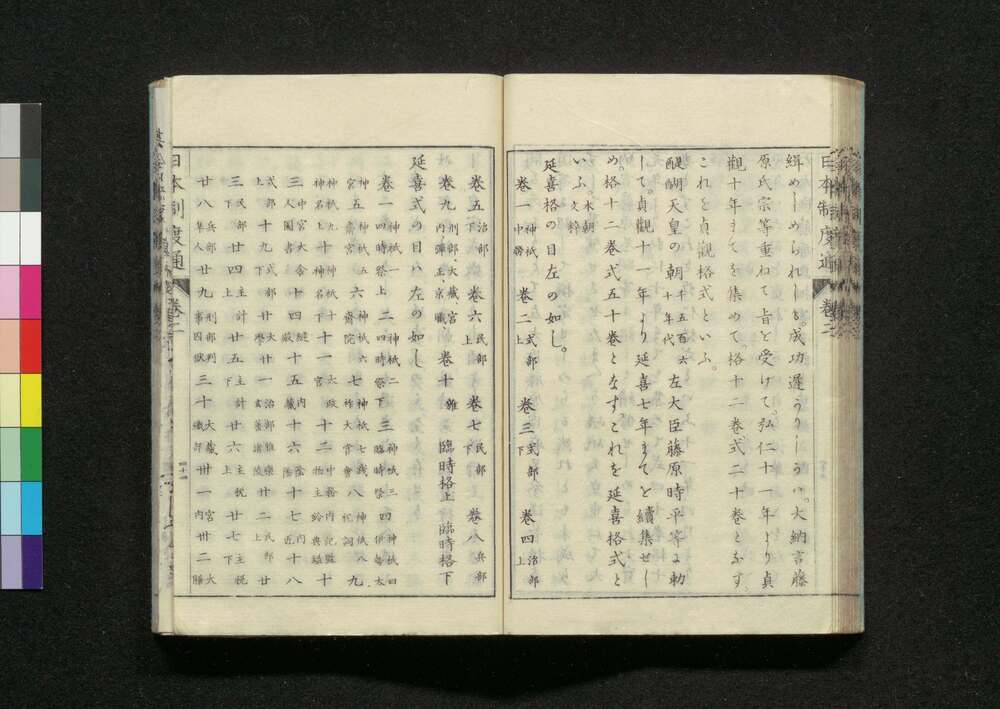 日本制度通 巻二
緝めしめられしも。成功遅かりしかバ。大納言藤
原氏宗等重ねて旨を受けて。弘仁十一年より貞
觀十年までを集めて。格十二巻式二十巻となす。
これを貞觀格式といふ。
醍醐天皇の朝 千五百六十年代 左大臣藤原時平等に勅
して。貞觀十一年より延喜七年までを續集せし
め格十二巻式五十巻となすこれを延喜格式と
いふ。本朝文粹
延喜格の目左の如し。
巻一 神祇中務 巻二 式部上 巻三 式部下 巻四 治部上
巻五 治部下 巻六 民部上 巻七 民部下 巻八 兵部
巻九 刑部、大藏、宮内、彈正、京職 巻十 雜 臨時格上 臨時格下
延喜式の目ハ左の如し
巻一 神祇一四時祭上 二 神祇二四時祭下 三 神祇三臨時祭 四 神祇四伊勢太
神宮 五 神祇五齋宮 六 神祇六齋院 七 神祇七踐祚大嘗會 八 神祇八祝詞 九
神祇九神名上 十 神祇十神名下 十一 太政官 十二 中務内記監物主鈴典鑰 十
三 中宮大舍人圖書 十四 縫殿 十五 内藏 十六 陰陽 十七 内匠 十八
式部上 十九 式部下 廿 大學 廿一 治部雅樂玄蕃諸陵 廿二 民部上 廿
三 民部下 廿四 主計上 廿五 主計下 廿六 主税上 廿七 主税下
廿八 兵部隼人 廿九 刑部判事囚獄 三十 大藏織部 卅一 宮内 卅二 大膳
日本制度通 巻二